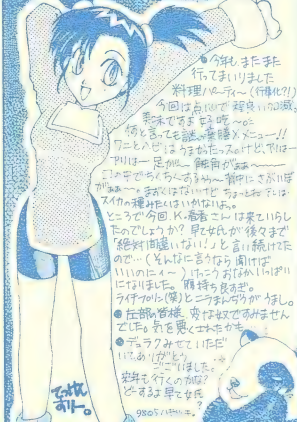 ●今年も、またまた
行ってまいりました
料理パーティ〜(行事化?!)
今回は
美味ですますぅ
何と言っても謎の素膳×メニュー!!
ワニとハビはうまかたっスのけど、下りは…
アリは… 足が…触角がぁぁ〜
口の中でちくちくするぅ〜 背中にさぶいぼ
がぁぁ〜。まずくはないけど ちょっと
スイカの種みたいにはいかないよぅ。
ところで今回、K・着者さんは来ていらし
たのでしょうか? 早て女氏が後々まで
「絶対間違いない!」と言い続けてた
ので…(そんなに言うなら聞けば
いいのにィ〜)けっこうおなかいっぱい
になりました。腹持ち良すぎ。
ライチプリン(笑)とニラまんぢうがうまし。
皆様、変な奴ですみません
でした。気を悪く
●デュラクみせていただ
いて、ありがとう
ございました。
来年も行くのかな?
どーするよ早て女氏
?
てっけん
すりー。
9805